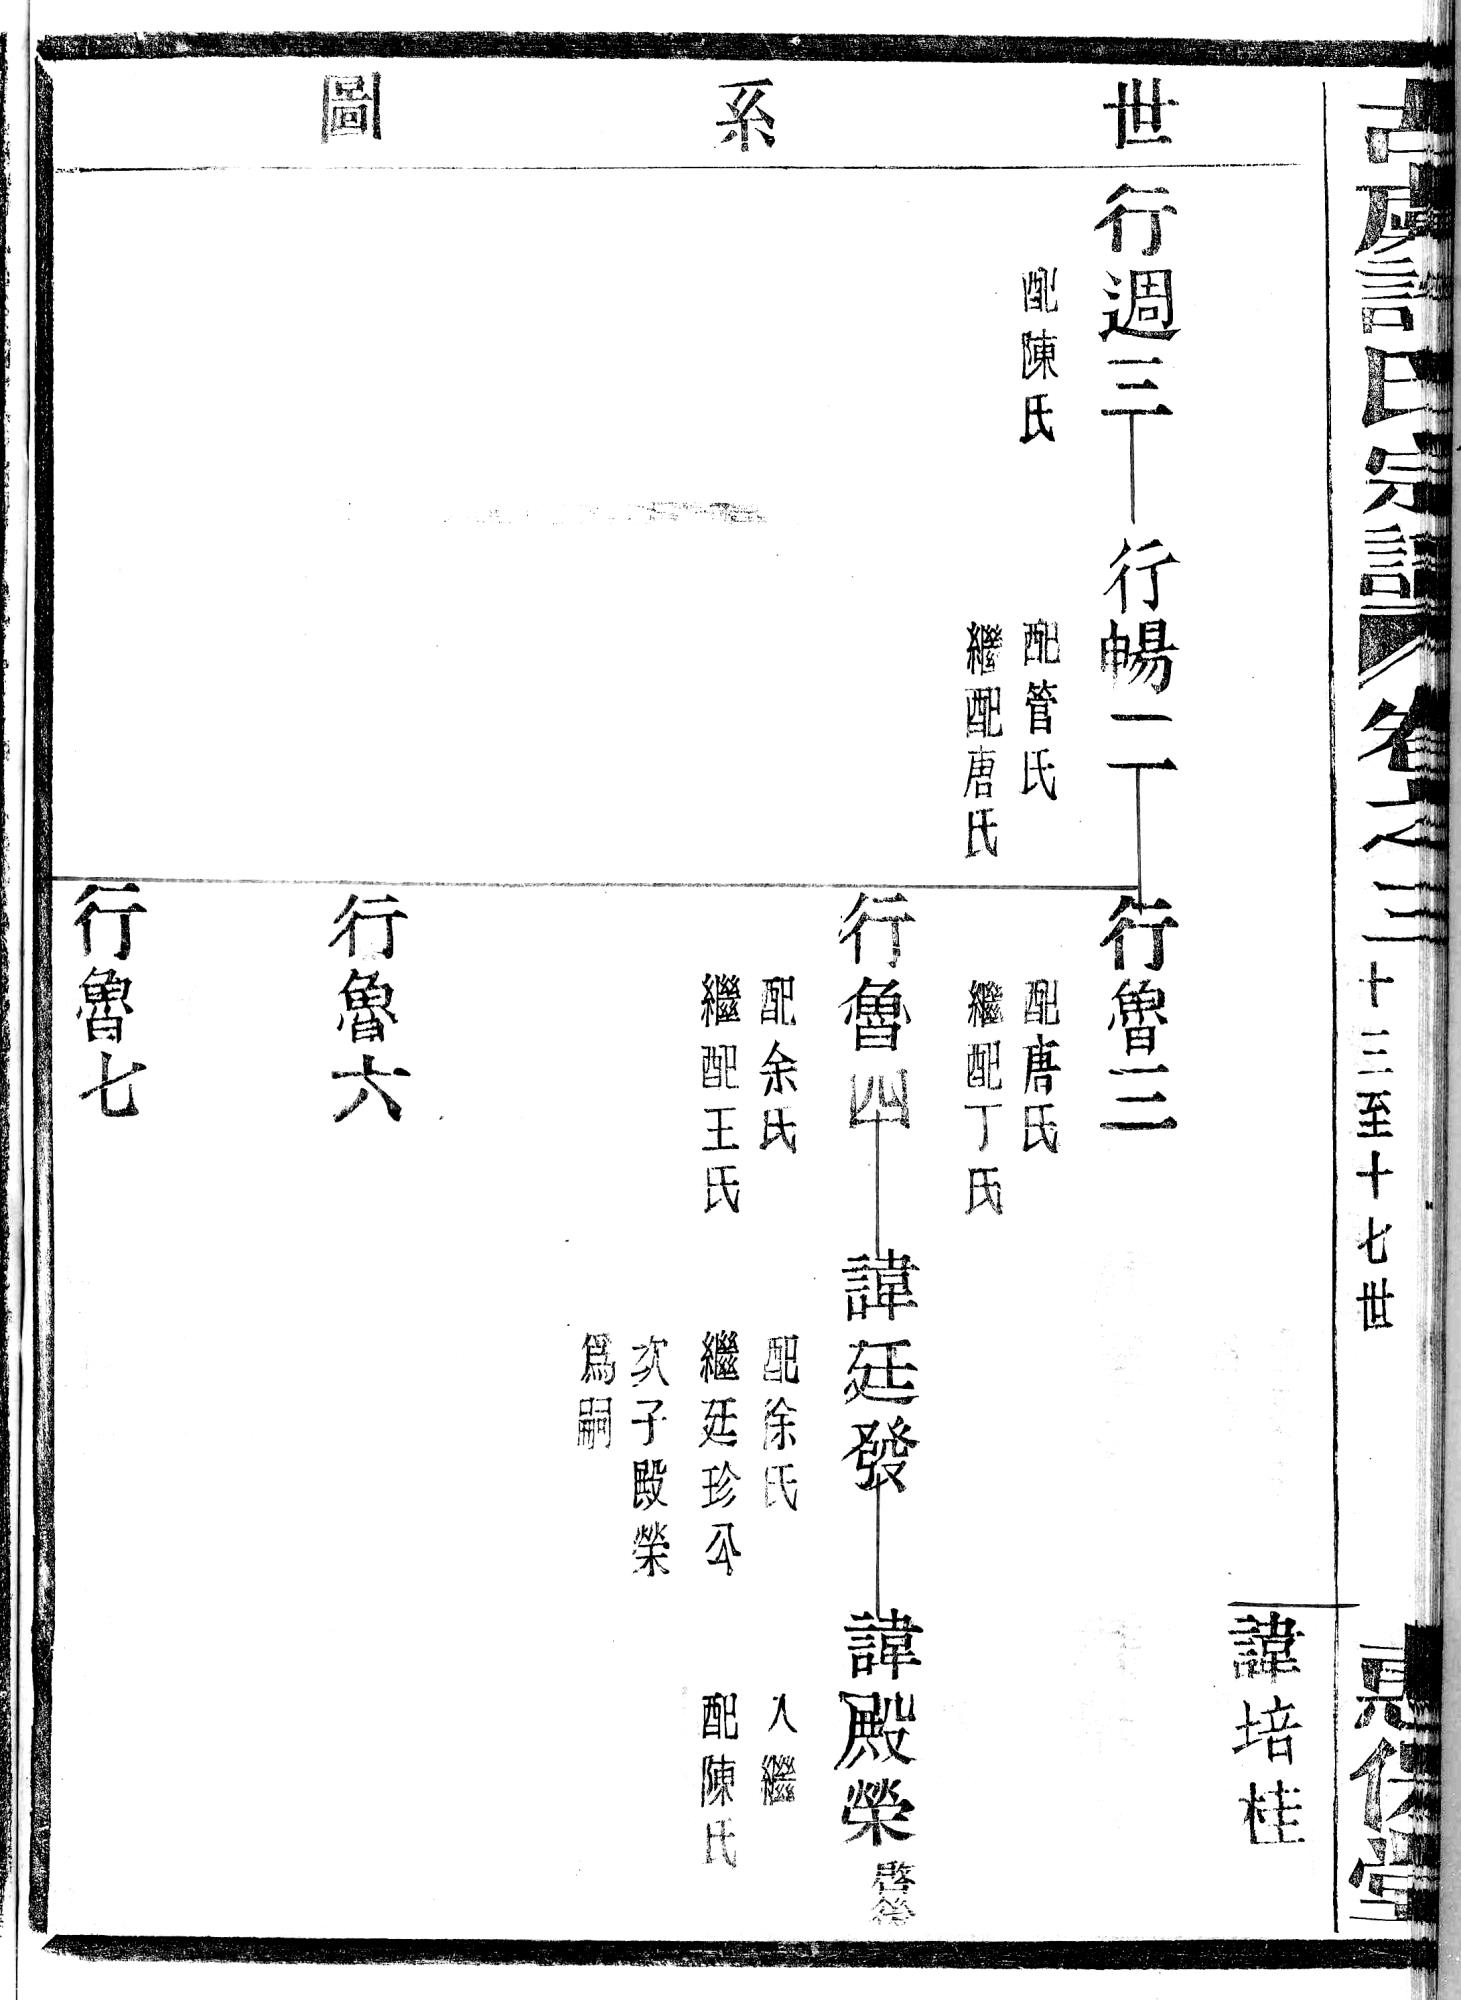 古虞許氏宗譜 卷之三 十三至十七世
世系圖
諱培桂
行週三
配陳氏
行暢二
配管氏
繼配唐氏
行魯三
配唐氏
繼配丁氏
行魯四
配余氏
繼配王氏
諱廷發
配徐氏
繼廷珍公
次子殿榮
爲嗣
諱殿榮
入繼
配陳氏
行魯六
行魯七